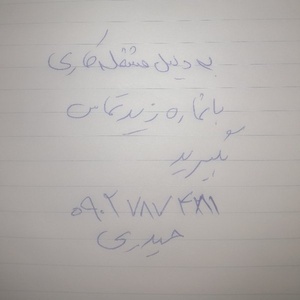 به دلیل مشغله کاری
با شماره زیر تماس
بگیرید
۰۹۰۲ ۷۸۷ ۴۲۸۱
حیدری